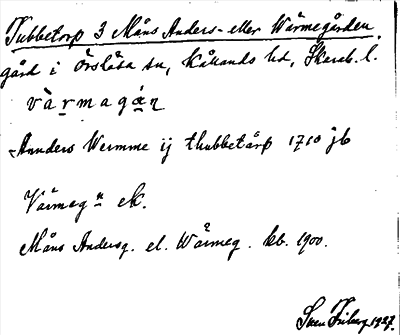 Tubbetorp 3 Måns Anders- eller Wärmegården.
gård i Örslösa sn, Kållands hd, Skarab. l.
vàrmagán
Annders Wermme ij thubbetårp 1710 jb
Värmeg n ek.
Måns Andersg. el. Wärmeg. kb. 1900.
Sven Friberg 1927.